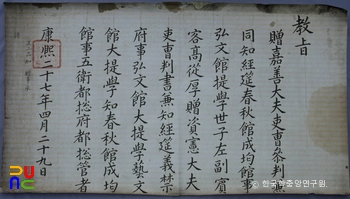 教旨
贈嘉善大夫吏曹參判兼
同知經筵春秋館成均館事
弘文館提學世子左副賓
客高從厚贈資憲大夫
吏曹判書兼知經筵義禁
府事弘文館大提學藝文
館大提學知春秋館成均
館事五衛都摠府都摠管者
康熙二十七年四月二十九日
© 한국학중앙연구원